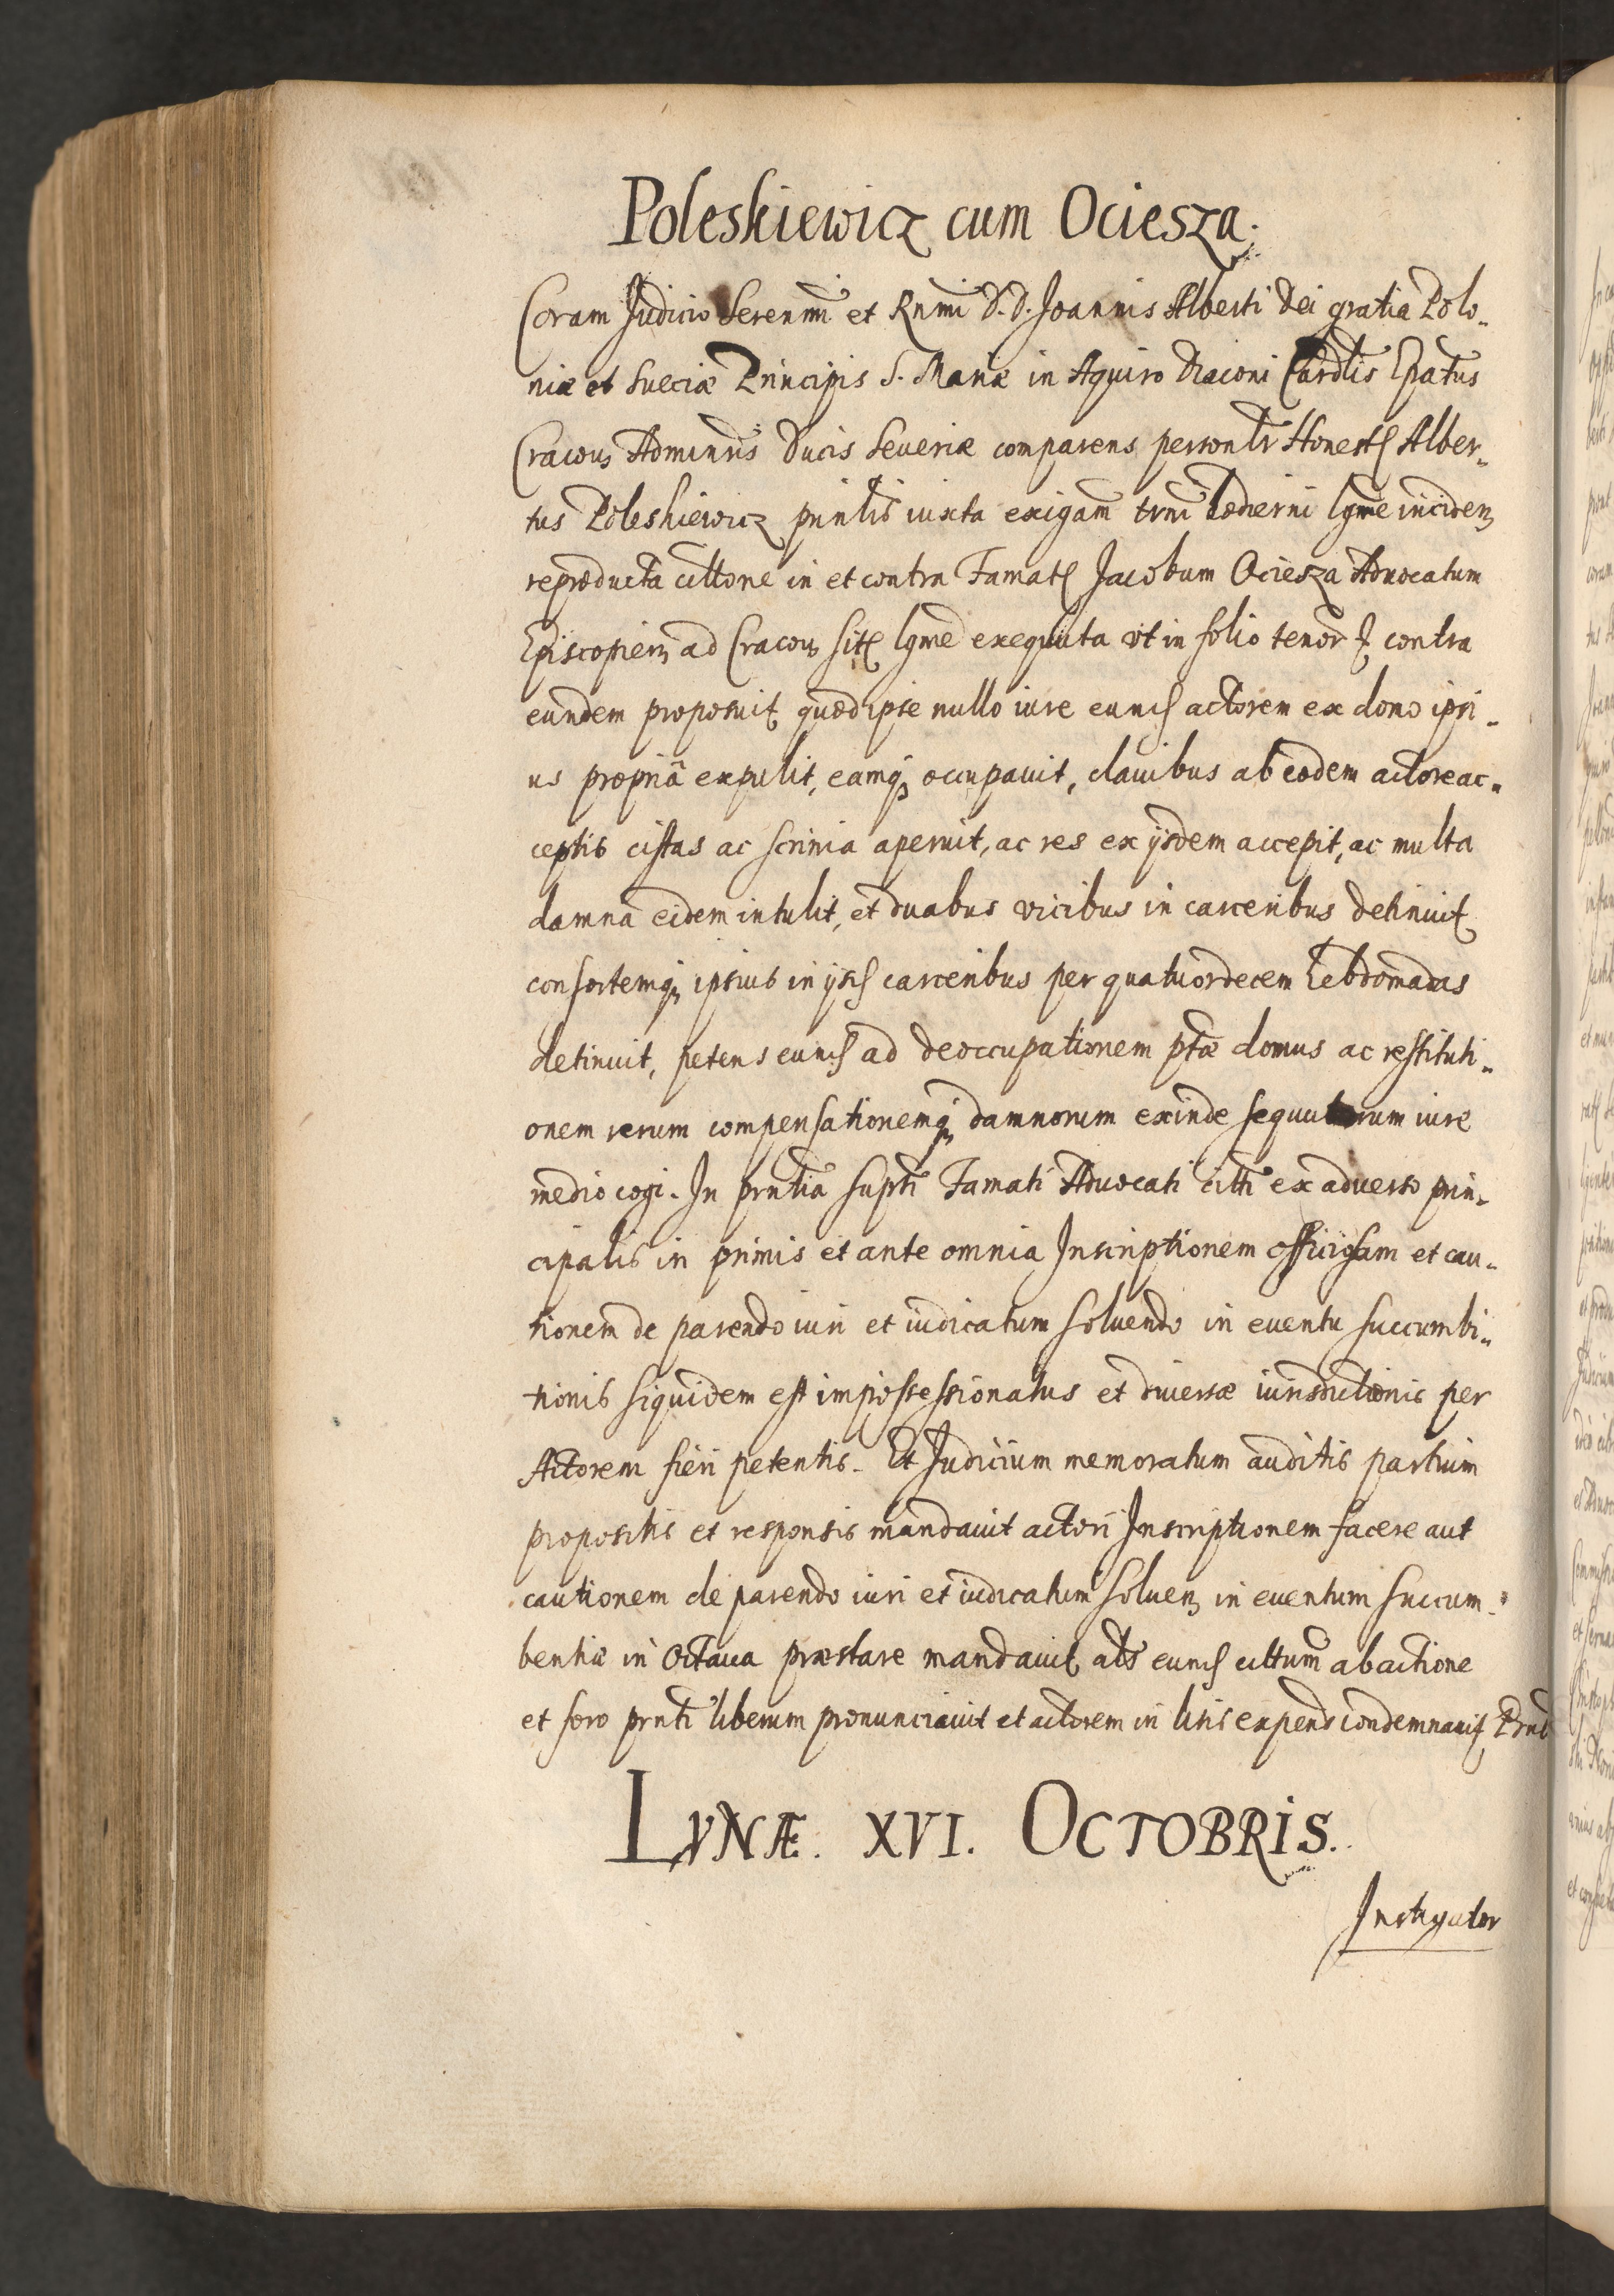 Poleskiewicz cum Ociesza.
Coram Judicio Serenmi et Rnmi D. D. Joannis Alberti Dei gratia Polo-
niæ et Sueciæ Principis S. Mariæ in Aquiro Diaconi Cardlis Epatus
Cracou Adminris Ducis Seueriæ comparens personlr Honest Alber-
tus Poleskiewicz prinlis iuxta exigam trni hodierni lgme inciden
reproducta citone in et contra Famat Jacobum Ociesza Aduocatum
Episcopien ad Cracou sit lgme exequuta vt in folio tenor & contra
eundem proposuit quod ipse nullo iure eund actorem ex domo ipsi-
us propriâ expulit, eamq occupauit, clauibus ab eodem actore ac-
ceptis cistas ac scrinia aperuit, ac res ex ijsdem accepit, ac multa
damna eidem intulit, et duabus vicibus in carceribus detinuit
consortemq ipsius in ijsd carceribus per quatuordecem hebdomadas
detinuit, petens eund ad deoccupationem ptæ domus ac restituti-
onem rerum compensationemq damnorum exinde sequutorum iure
medio cogi. In prntia supti Famati Aduocati citti ex aduerso prin-
cipalis in primis et ante omnia Inscriptionem officiosam et cau-
tionem de parendo iuri et iudicatum soluendo in euentu succumbi-
tionis siquidem est impossessionatus et diuersæ iurisdictionis per
Actorem fieri petentis. Et Judicium memoratum auditis partium
propositis et responsis mandauit actori Inscriptionem facere aut
cautionem de parendo iuri et iudicatum soluen in euentum succum-
bentiæ in Octaua præstare mandauit als eund cittum ab actione
et foro prnti liberum pronunciauit et actorem in litis expens condemnauit Prnt
LVNÆ. XVI. OCTOBRIS.
Instigator